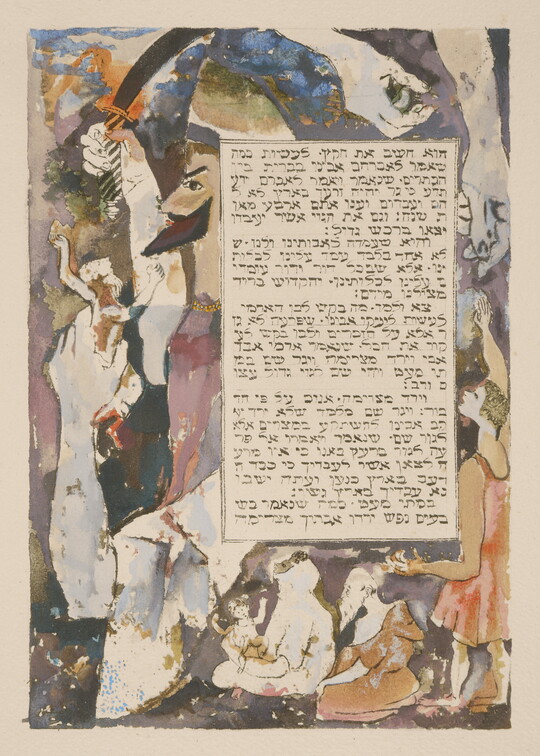 הוא חשב את הקץ לעשות כמה
שאמר לאברהם אבינו בברית בין
הבתרים שנאמר ויאמר לאברם ידע
תדע כי גר יהיה זרעך בארץ לא ל
הם ועבדום וענו אתם ארבע מאו
ת שנה: וגם את הגוי אשר יעבדו
יצאו ברכש גדול:
והיא שעמדה לאבותינו ולנו · ש
לא אחד בלבד עמד עלינו לכלות
נו · אלא שבכל דור ודור עומדי
ם עלינו לכלותינו · והקדוש ברוך
מצילנו מידם:
צא ולמד · מה בקש לבן הארמי ·
לעשות ליעקב אבינו · שפרעה לא גז
ר אלא על הזכרים ולבן בקש לע
קור את הכל שנאמר ארמי אבד
אבי וירד מצרימה ויגר שם במת
י מעט ויהי שם לגוי גדול עצו
ם ורב:
וירד מצרימה · אנוס על פי הד
בור: ויגר שם מלמד שלא ירד יע
קב אבינו להשתקע במצרים אלא
לגור שם · שנאמר ויאמרו אל פר
עה לגור בארץ באנו כי אין מרע
ה לצאן אשר לעבדיך כי כבד ה
רעב בארץ כנען ועתה ישבו
נא עבדיך בארץ גשן:
במתי מעט · כמה שנאמר בש
בעים נפש ירדו אבתיך מצרימה